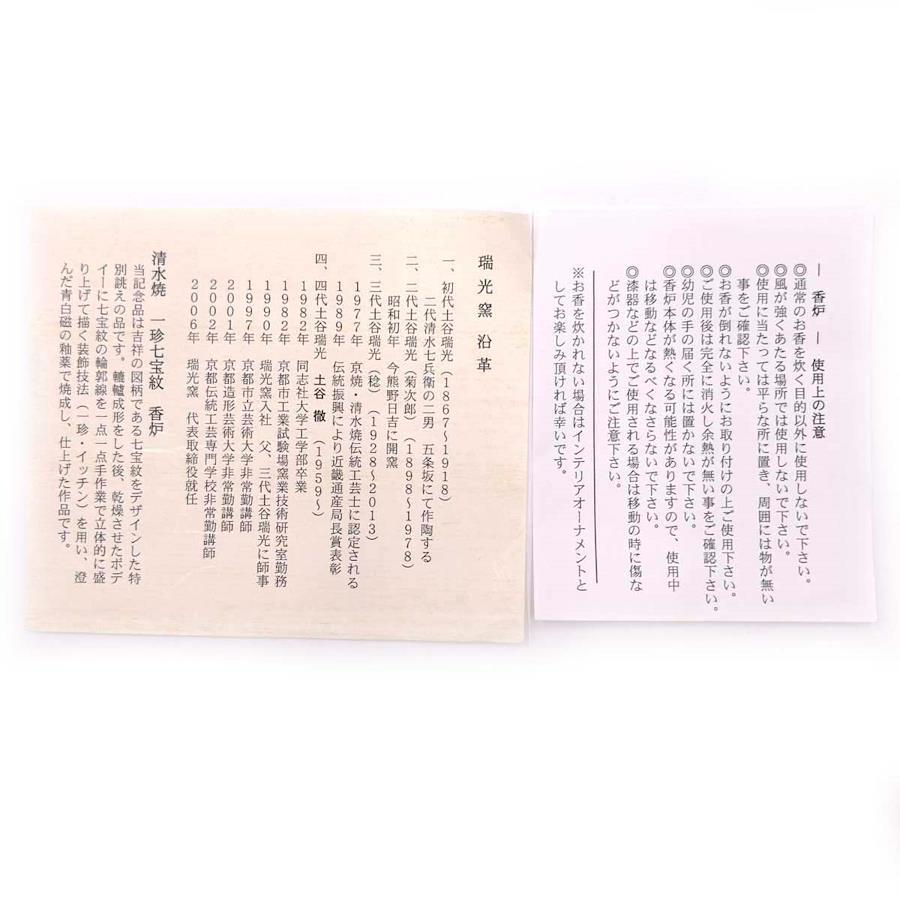 ― 香炉 ― 使用上の注意
◎通常のお香を炊く目的以外に使用しないで下さい。
◎風が強くあたる場所では使用しないで下さい。
◎使用に当たっては平らな所に置き、周囲には物が無い
事をご確認下さい。
◎お香が倒れないようにお取り付けの上ご使用下さい。
◎ご使用後は完全に消火し余熱が無い事をご確認下さい。
◎幼児の手の届く所には置かないで下さい。
◎香炉本体が熱くなる可能性がありますので、使用中
は移動などなるべくなさらないで下さい。
◎漆器などの上でご使用される場合は移動の時に傷な
どがつかないようにご注意下さい。
※お香を炊かれない場合はインテリアオーナメントと
してお楽しみ頂ければ幸いです。
瑞光窯 沿革
一、初代土谷瑞光(1867~1918)
二代清水七兵衛の二男 五条坂にて作陶する
二、二代土谷瑞光(菊次郎)(1898~1978)
昭和初年 今熊野日吉に開窯
三、三代土谷瑞光(稔)(1928~2013)
1977年 京焼・清水焼伝統工芸士に認定される
1989年 伝統振興により近畿通産局長賞表彰
四、四代土谷瑞光 土谷 徹(1959~)
1982年 同志社大学工学部卒業
1982年 京都市工業試験場窯業技術研究室勤務
1990年 瑞光窯入社 父、三代土谷瑞光に師事
1997年 京都市立芸術大学非常勤講師
2001年 京都造形芸術大学非常勤講師
2002年 京都伝統工芸専門学校非常勤講師
2006年 瑞光窯 代表取締役就任
清水焼 一珍七宝紋 香炉
当記念品は吉祥の図柄である七宝紋をデザインした特
別誂えの品です。轆轤成形をした後、乾燥させたボデ
ィーに七宝紋の輪郭線を一点一点手作業で立体的に盛
り上げて描く装飾技法(一珍・イッチン)を用い、澄
んだ青白磁の釉薬で焼成し、仕上げた作品です。